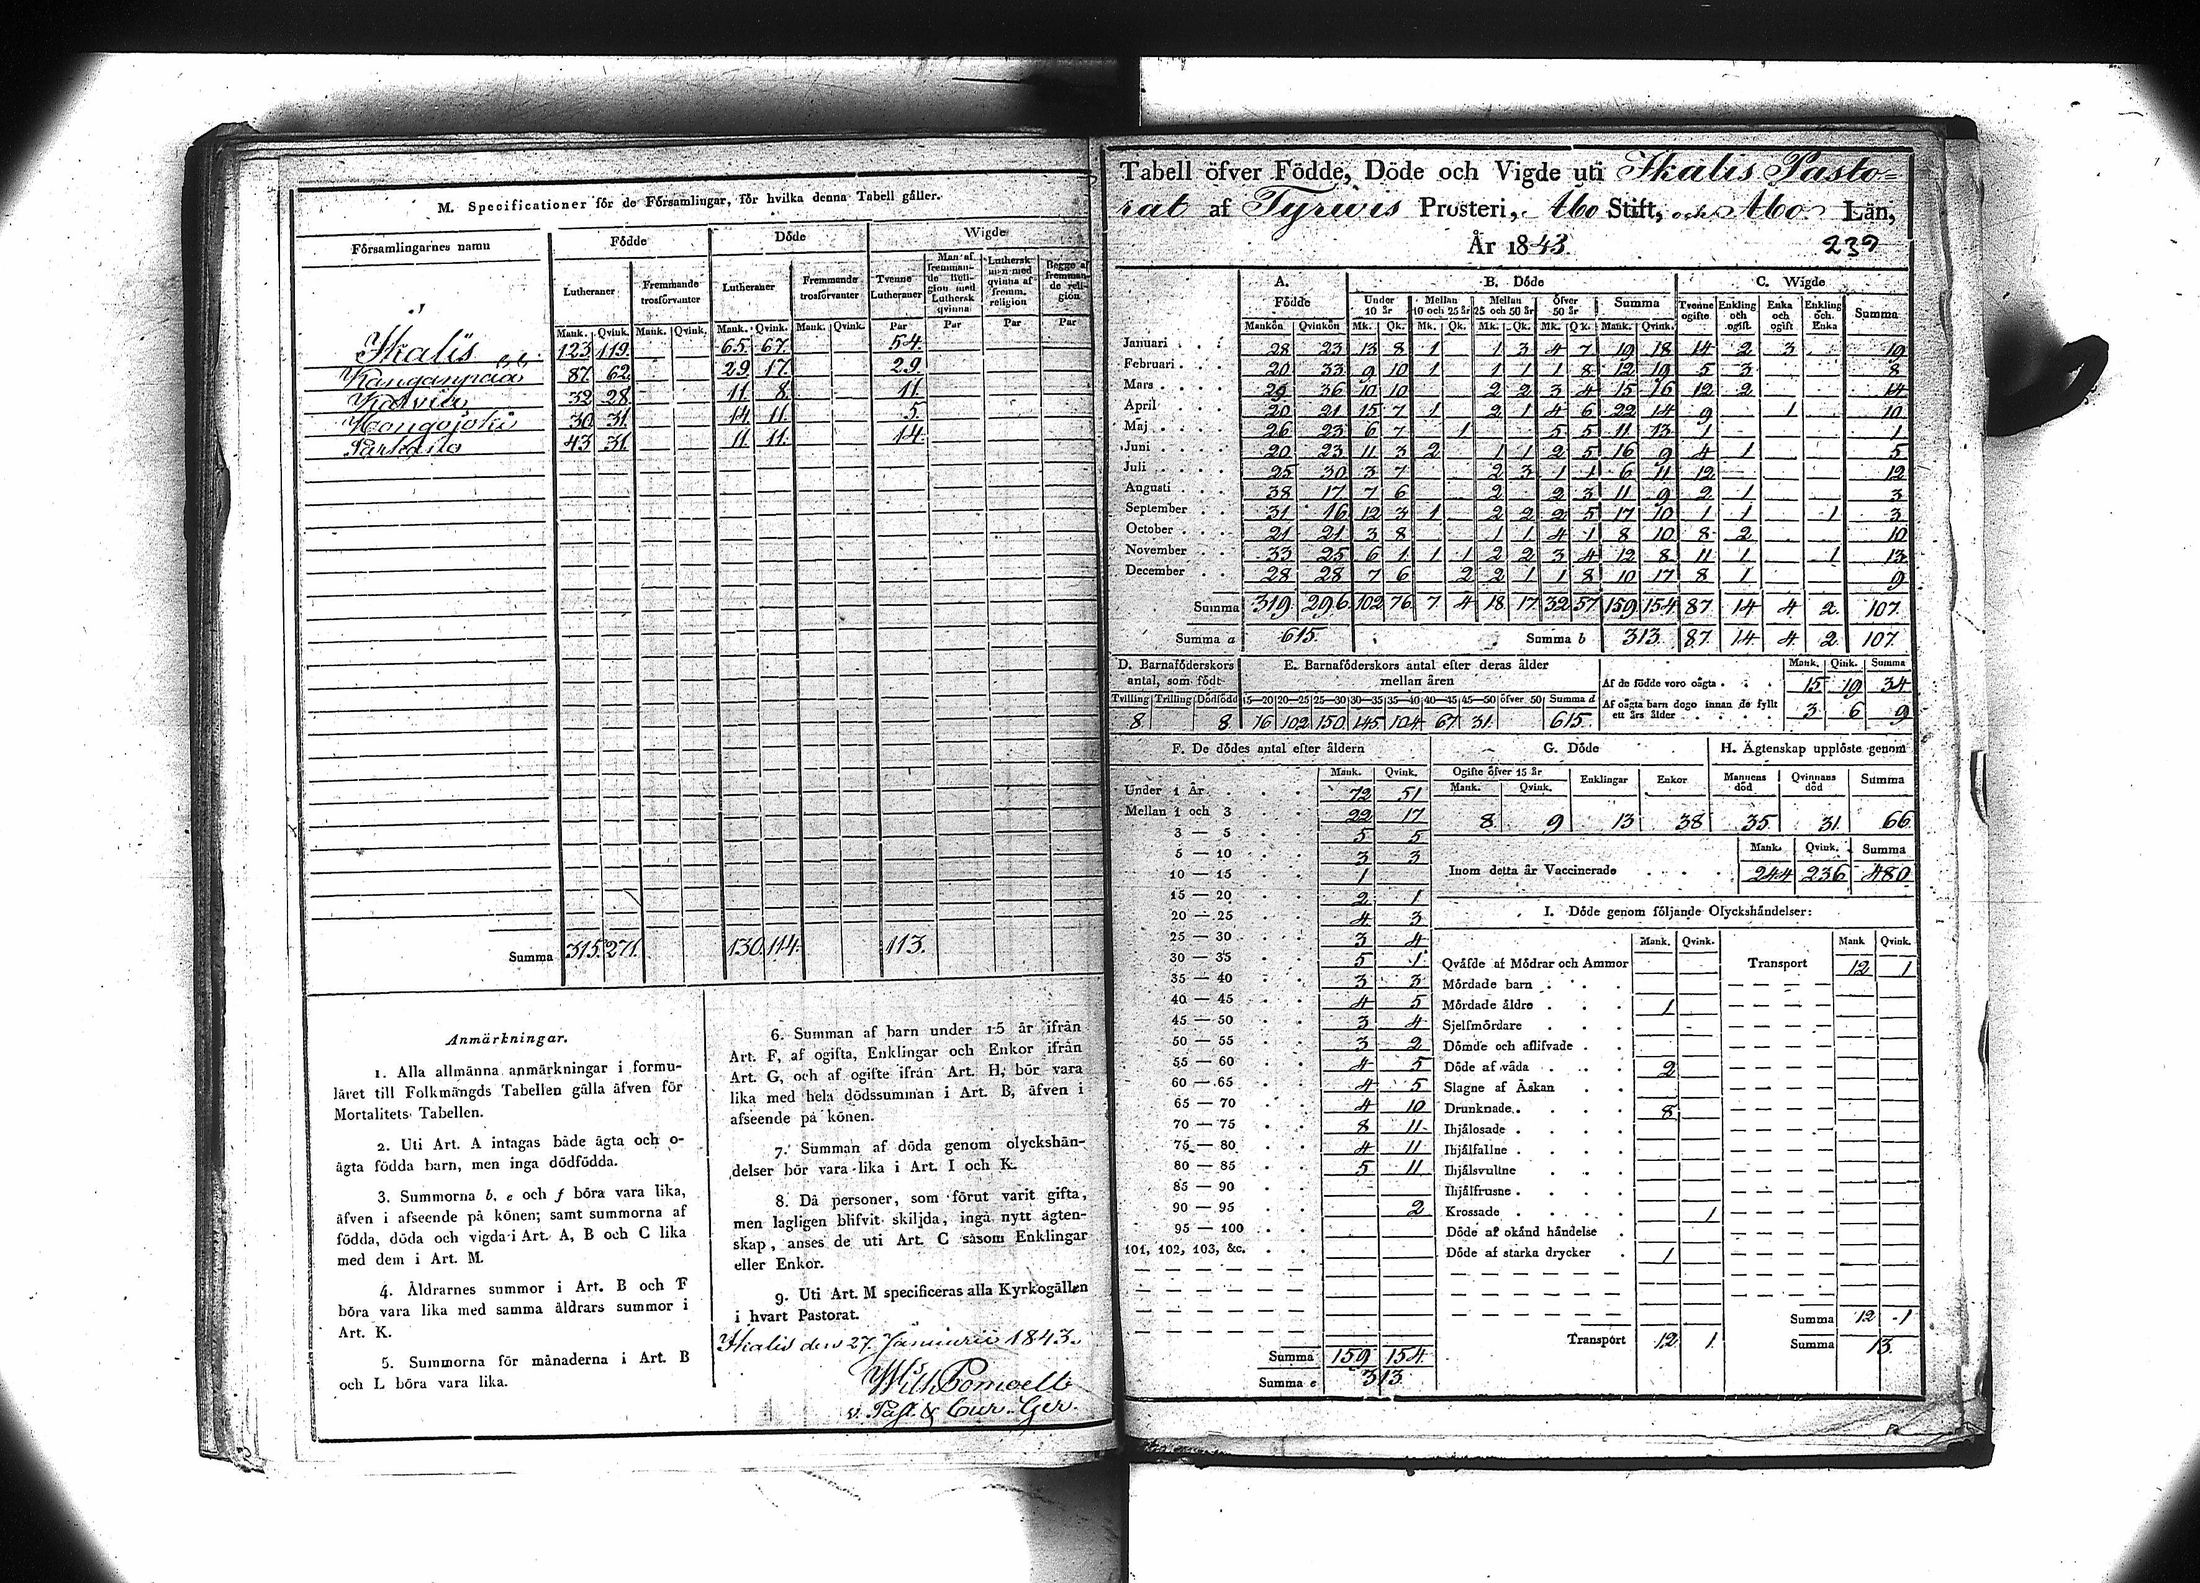 M. Specificationer för de Församlingar, för hvilka denna Tabell gäller.
Församlingarnes namn Födde Döde Wigde
Lutheraner Fremmande trosförvanter Lutheraner Fremmande trosförvanter Tvenne Lutheraner Man af fremmande Religion med Luthersk qvinna Luthersk man med qvinna af fremm. religion Begge af fremmande religion
Mank. Qvink. Mank. Qvink. Mank. Qvink. Mank. Qvink. Par Par Par Par
Ikalis 123 119 65 67 54
Kangaspää 87 62 29 17 29
32 28 11 8 11
Hongojoki 30 31 14 11 5
Parkano 43 31 11 11 14
Summa 315 271 130 114 113
Anmärkningar.
1. Alla allmänna anmärkningar i formu-
läret till Folkmängds Tabellen gälla äfven för
Mortalitets Tabellen.
2. Uti Art. A intagas både ägta och o-
ägta födda barn, men inga dödfödda.
3. Summorna b, e och f böra vara lika,
äfven i afseende på könen; samt summorna af
födda, döda och vigda i Art. A, B och C lika
med dem i Art. M.
4. Åldrarnes summor i Art. B och F
böra vara lika med samma åldrars summor i
Art. K.
5. Summorna för månaderna i Art. B
och L böra vara lika.
6. Summan af barn under 15 år ifrån
Art. F, af ogifta, Enklingar och Enkor ifrån
Art. G, och af ogifte ifrån Art. H, bör vara
lika med hela dödssumman i Art. B, äfven i
afseende på könen.
7. Summan af döda genom olyckshän-
delser bör vara lika i Art. I och K.
8. Då personer, som förut varit gifta,
men lagligen blifvit skiljda, ingå nytt ägten-
skap, anses de uti Art. C såsom Enklingar
eller Enkor.
9. Uti Art. M specificeras alla Kyrkogällen
i hvart Pastorat.
Ikalis den 27 Januarii 1843.
v. Past. &
Tabell öfver Födde, Döde och Vigde uti Ikalis Pasto-
rat af Tyrwis Prosteri, Åbo Stift, och Åbo Län,
År 1843. 239
A. B. Döde C. Wigde
Födde Under 10 år Mellan 10 och 25 år Mellan 25 och 50 år Öfver 50 år Summa Tvenne ogifte Enkling och ogift Enka och ogift Enkling och Enka Summa
Mankön Qvinkön Mk. Qk. Mk. Qk. Mk. Qk. Mk. Qk. Mank. Qvink.
Januari 28 23 13 8 1 1 3 4 7 19 18 14 2 3 19
Februari 20 33 9 10 1 1 1 1 8 12 19 5 3 8
Mars 29 36 10 10 2 2 3 4 15 16 12 2 14
April 20 21 15 7 1 2 1 4 6 22 14 9 1 10
Maj 26 23 6 7 1 5 5 11 13 1 1
Juni 20 23 11 3 2 1 1 2 5 16 9 4 1 5
Juli 25 30 3 7 2 3 1 1 6 11 12 12
Augusti 38 17 7 6 2 2 3 11 9 2 1 3
September 31 16 12 3 1 2 2 2 5 17 10 1 1 1 3
October 21 21 3 8 1 1 4 1 8 10 8 2 10
November 33 25 6 1 1 1 2 2 3 4 12 8 11 1 1 13
December 28 28 7 6 2 2 1 1 8 10 17 8 1 9
Summa 319 296 102 76 7 4 18 17 32 57 159 154 87 14 4 2 107
Summa a 615 Summa b 313 87 14 4 2 107
D. Barnaföderskors antal, som födt E. Barnaföderskors antal efter deras ålder mellan åren Mank. Qink. Summa
Af de födde voro oägta 15 19 34
Tvilling Trilling Dödfödd 15—20 20—25 25—30 30—35 35—40 40—45 45—50 öfver 50 Summa d Af oägta barn dogo innan de fyllt ett års ålder 3 6 9
8 8 16 102 150 145 104 67 31 615
F. De dödes antal efter åldern
Mank. Qvink.
Under 1 År 72 51
Mellan 1 och 3 22 17
3 — 5 5 5
5 — 10 3 3
10 — 15 1
15 — 20 2 1
20 — 25 4 3
25 — 30 3 4
30 — 35 5 1
35 — 40 3 3
40 — 45 4 5
45 — 50 3 4
50 — 55 3 2
55 — 60 4 5
60 — 65 4 5
65 — 70 4 10
70 — 75 8 11
75 — 80 4 11
80 — 85 5 11
85 — 90
90 — 95 2
95 — 100
101, 102, 103, &c.
Summa 159 154
Summa e 313
G. Döde H. Ägtenskap upplöste genom
Ogifte öfver 15 år Enklingar Enkor Mannens död Qvinnans död Summa
Mank. Qvink.
8 9 13 38 35 31 66
Mank. Qvink. Summa
Inom detta år Vaccinerade 244 236 480
I. Döde genom följande Olyckshändelser:
Mank. Qvink. Mank Qvink.
Qväfde af Mödrar och Ammor Transport 12 1
Mördade barn
Mördade äldre 1
Sjelfmördare
Dömde och aflifvade
Döde af våda 2
Slagne af Åskan
Drunknade 8
Ihjälosade
Ihjälfallne
Ihjälsvultne
Ihjälfrusne
Krossade 1
Döde af okänd händelse
Döde af starka drycker 1
Summa 12 1
Transport 12 1 Summa 13